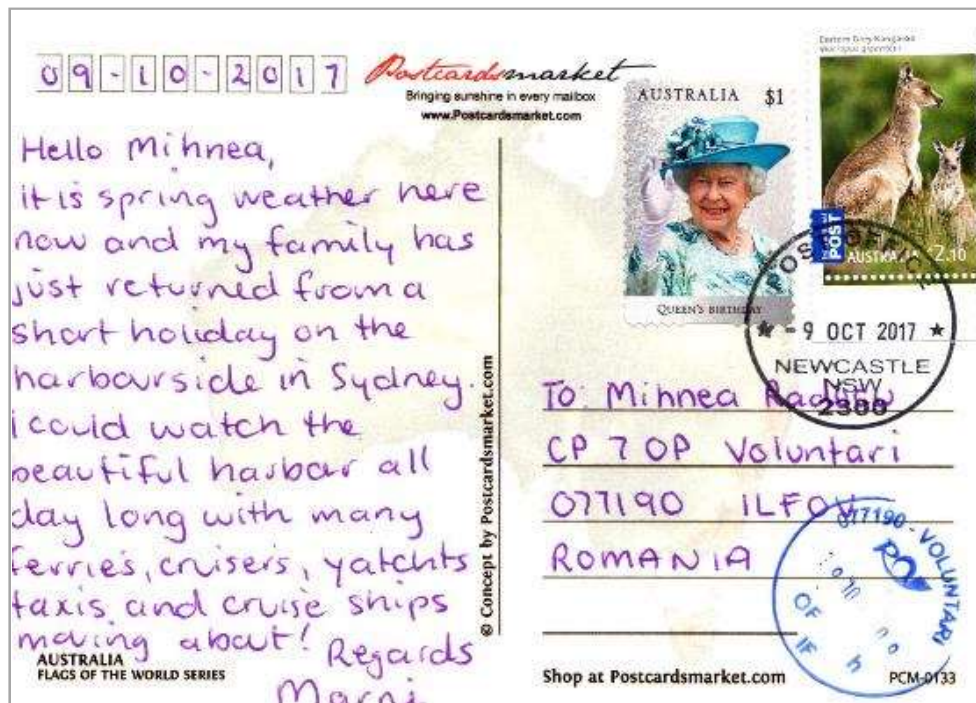 09-10-2017
Postcardsmarket
Bringing sunshine in every mailbox
www.Postcardsmarket.com
Hello Mihnea,
it is spring weather here
now and my family has
just returned from a
short holiday on the
harbourside in Sydney.
i could watch the
beautiful harbar all
day long with many
ferries, cruisers, yatchts
taxis and cruise ships
moving about!
Regards
Marni
AUSTRALIA
FLAGS OF THE WORLD SERIES
© Concept by Postcardsmarket.com
AUSTRALIA $1
QUEEN'S BIRTHDAY
Eastern Grey Kangaroo
POST
AUSTRALIA 2.10
POST OFFICE
- 9 OCT 2017
NEWCASTLE
NSW
2300
To Mihnea
CP 7 OP Voluntari
077190 ILFOV
ROMANIA
077190 - VOLUNTARI
OF
IF
Shop at Postcardsmarket.com
PCM-0133